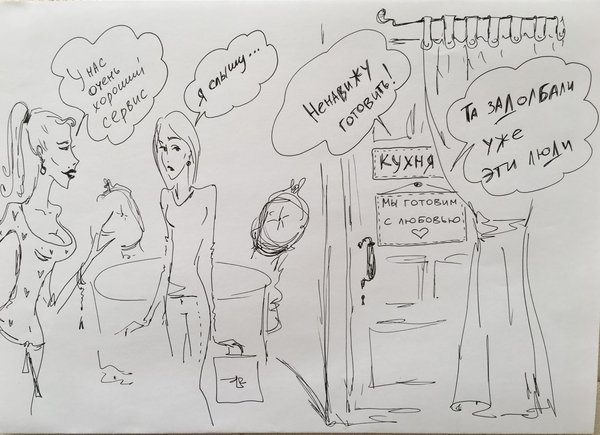 У нас
очень
хороший
сервис
Я слышу...
Ненавижу
готовить!
Кухня
Мы готовим
с любовью
Та задолбали
уже
эти люди